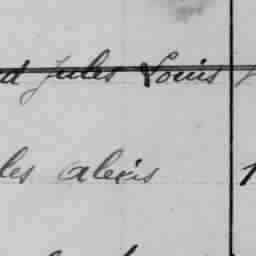 d Jules Louis
les alexis